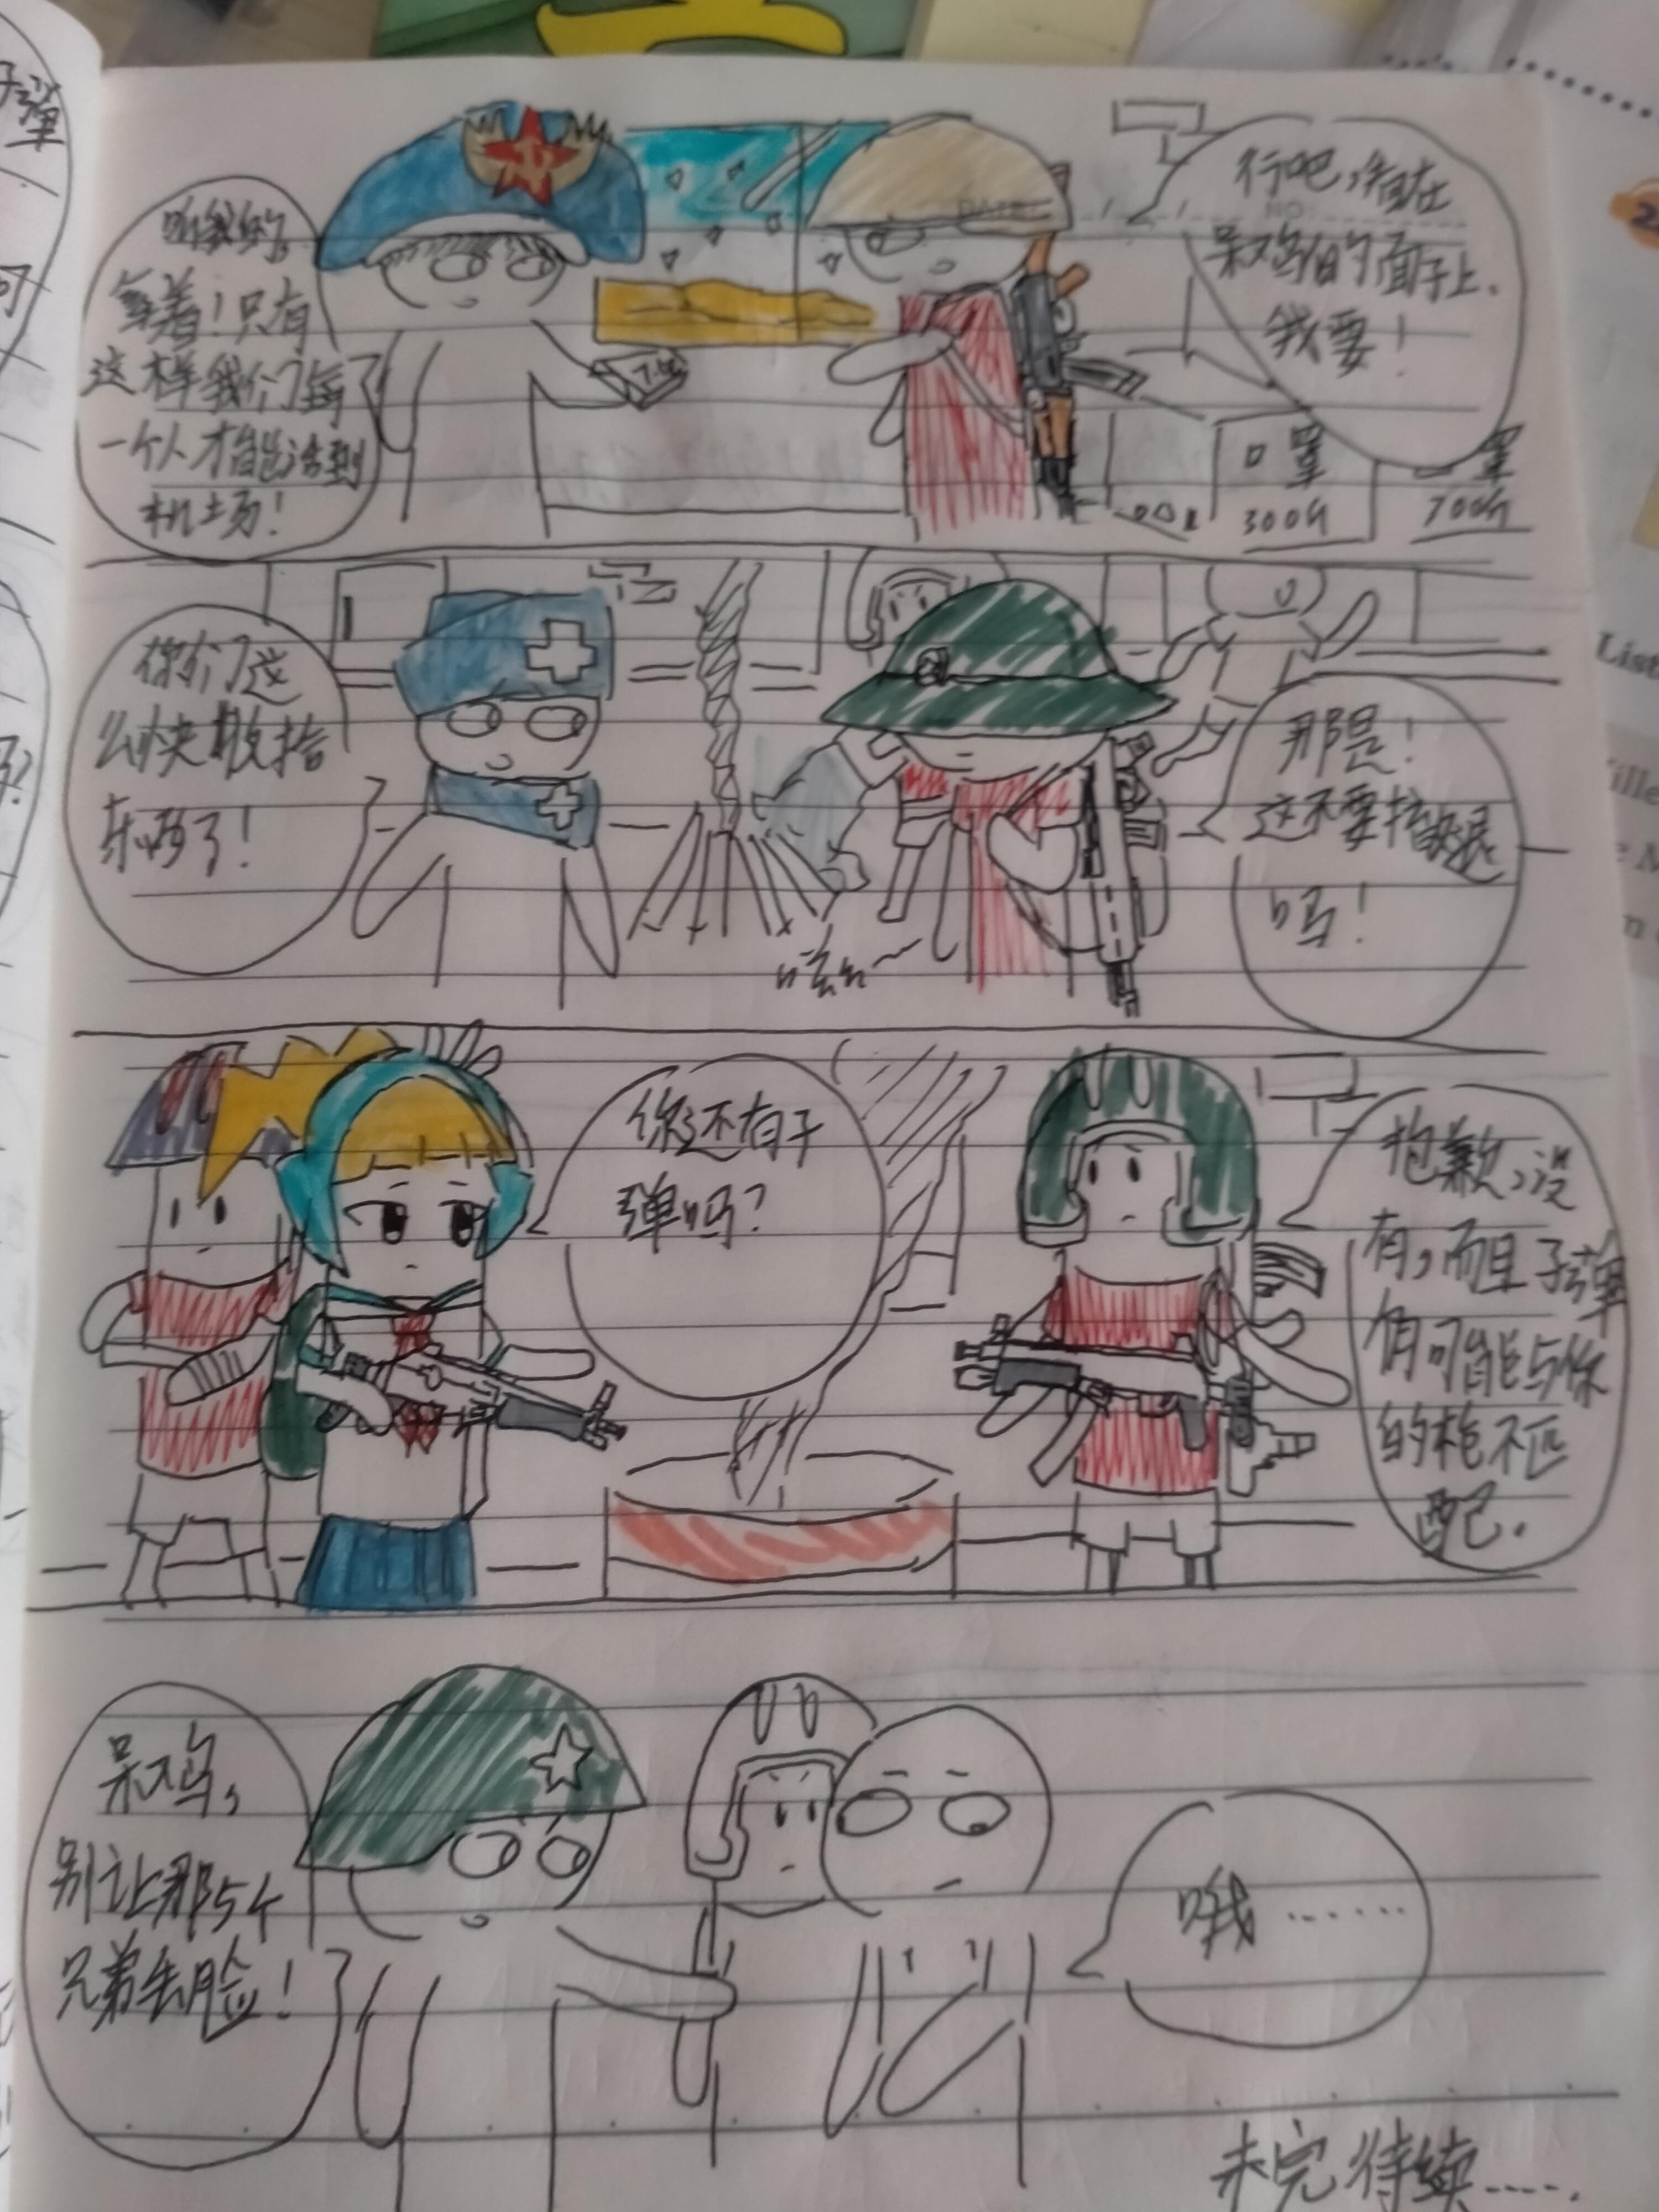 子弹
听我的,
拿着!只有
这样我们每
一个人才能活到
机场!
行吧,看在
呆鸡的面子上,
我要!
DATE
NO
口罩
300斤
罩
700斤
你们这
么快收拾
东西了!
那是!
吗!
你还有子
弹吗?
抱歉,没
有,而且子弹
有可能与你
的枪不匹
配.
呆鸡,
别让那5个
兄弟丢脸!
哦……
未完待续……
List